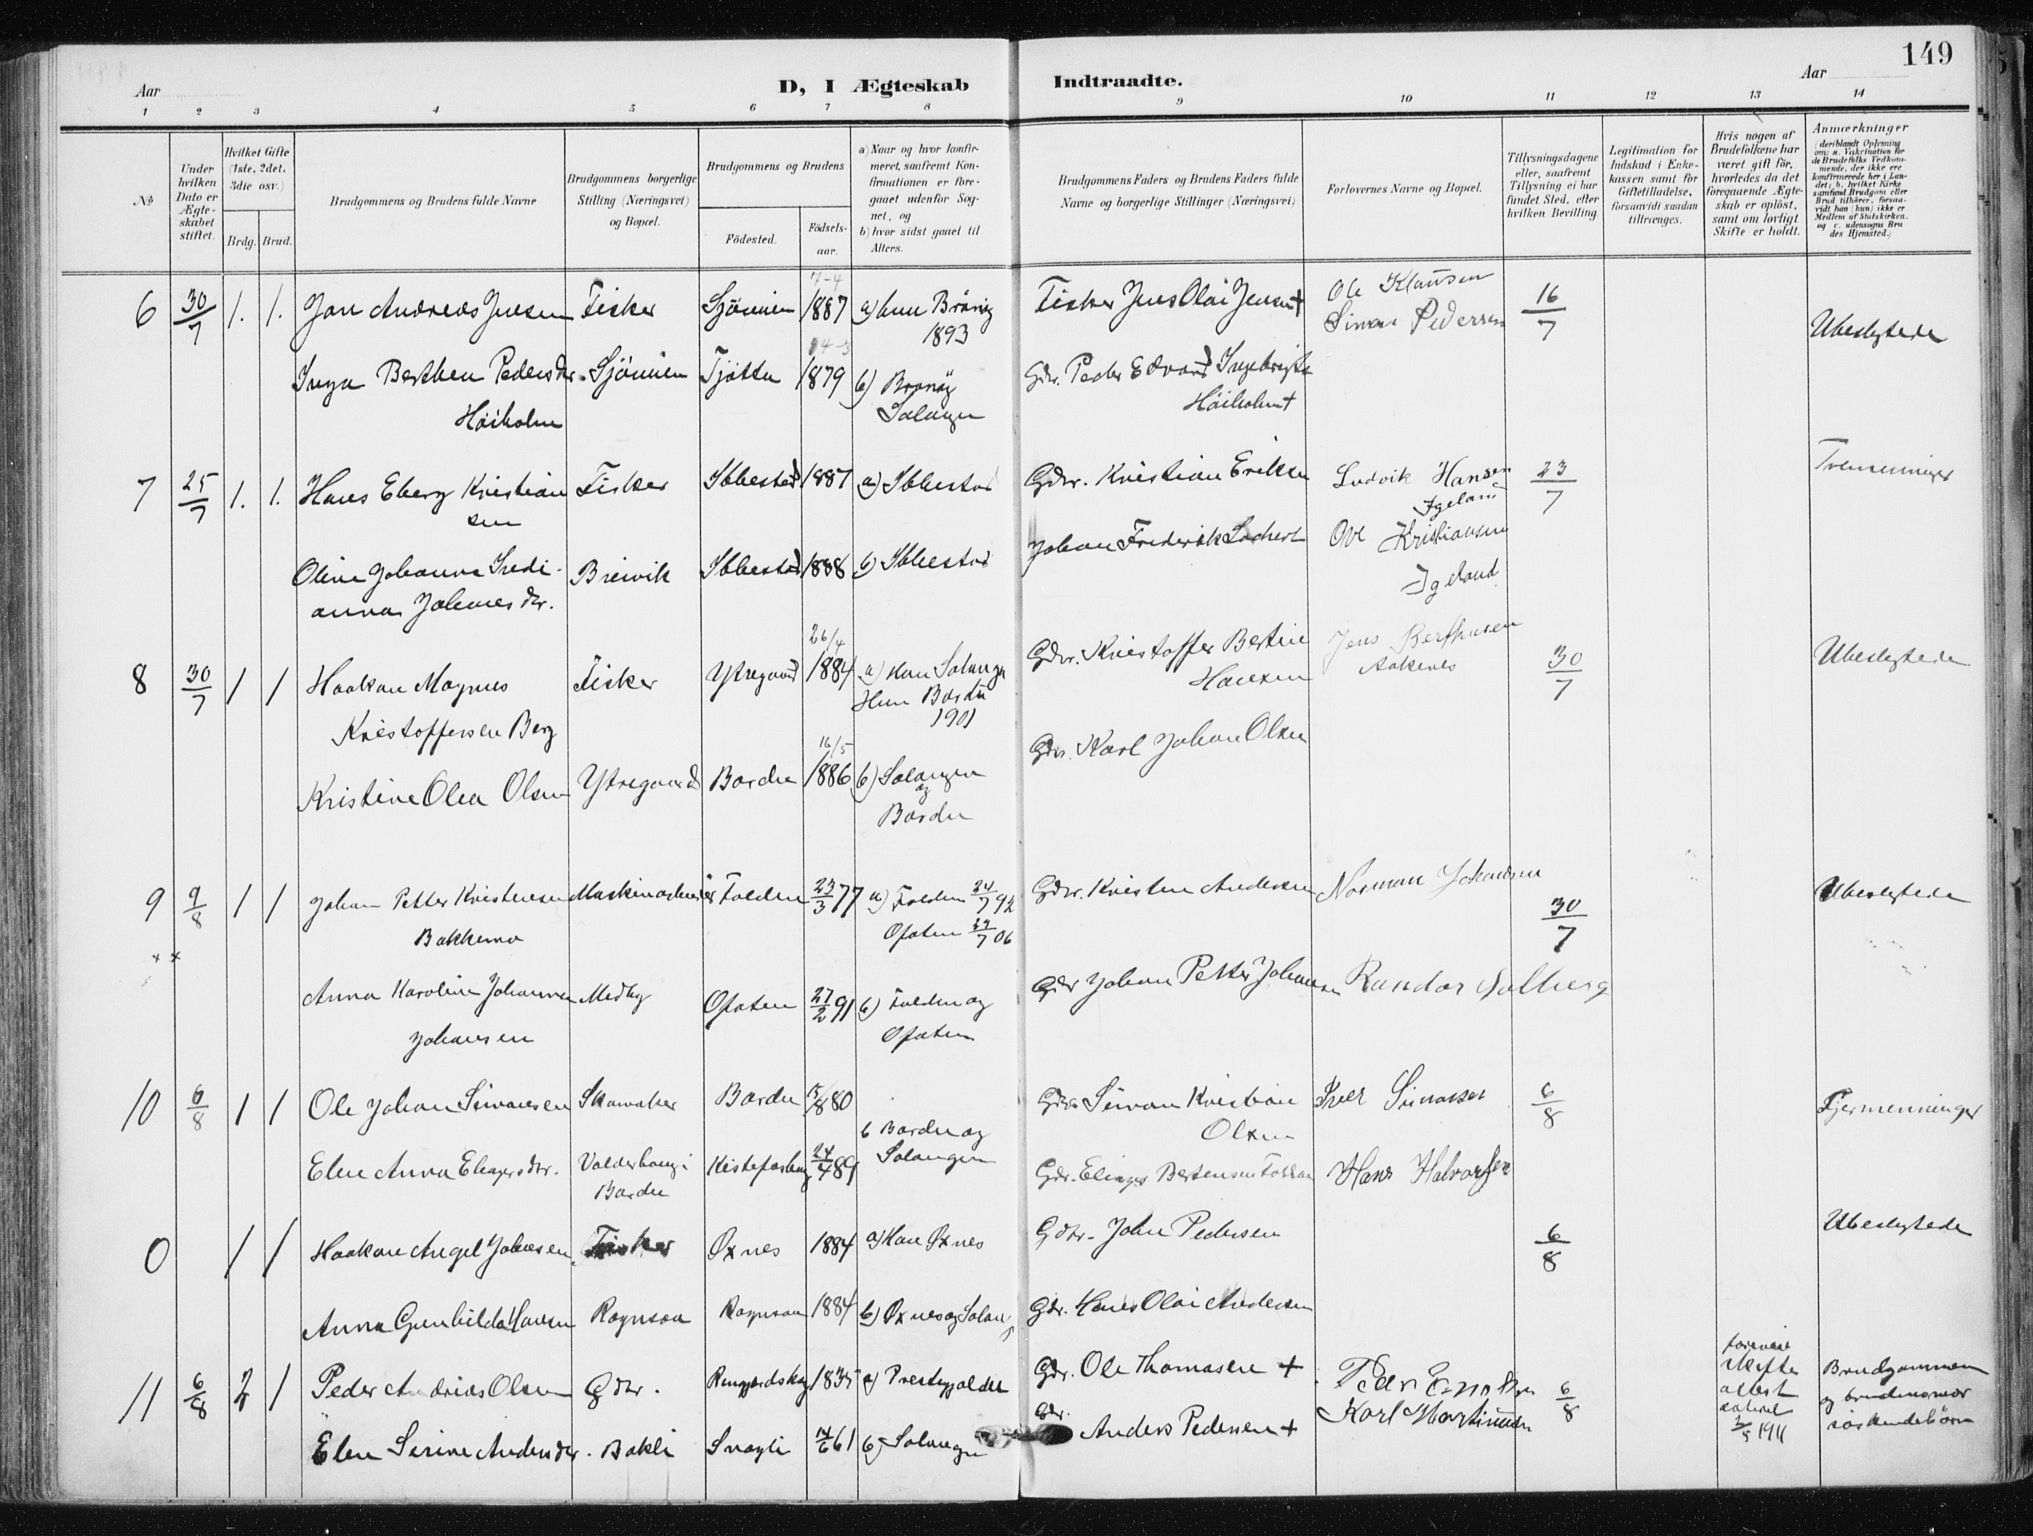 149
Aar
D, I Ægteskab Indtraadte.
Aar
1 2 3 4 5 6 7 8 9 10 11 12 13 14
No
Under hvilken Dato er Ægteskabet stiftet.
Hvilket Gifte (1ste, 2det, 3die osv.)
Brdg. Brud.
Brudgommens og Brudens fulde Navne
Brudgommens borgerlige Stilling (Næringsvei) og Bopæl.
Brudgommens og Brudens
Födested. Födselsaar.
a) Naar og hvor konfirmeret, saafremt Konfirmationen er foregaaet udenfor Sognet, og
b) hvor sidst gaaet til Alters.
Brudgommens Faders og Brudens Faders fulde Navne og borgerlige Stillinger (Næringsvei)
Forlovernes Navne og Bopæl.
Tillysningsdagene eller, saafremt Tillysning ei har fundet Sted, efter hvilken Bevilling.
Legitimation for Indskud i Enkekassen samt for Giftetilladelse, forsaavidt saadan tiltrænges.
Hvis nogen af Brudefolkene har været gift för, hvorledes da det foregaaende Ægteskab er oplöst, samt om lovligt Skifte er holdt.
Anmærkninger
(deriblandt Oplysning om: a. Vakcination for de Brudefolks Vedkommende, der ikke ere konfirmerede her i Landet; b. hvilket Kirkesamfund Brudgom eller Brud tilhörer, forsaavidt han (hun) ikke er Medlem af Statskirken, og c. udensogns Brudes Hjemsted.)
6 30/7 1. 1. Jon Andreas Jensen Fisker 1887 a) hun Brönö 1893 Fisker Jens Olai Jensen + Ole Klausen 16/7 Ubeslegtede
Simon Pedersen
Inga Berthea Pedersdtr. Tjötta 1879 b) Brönöy Gdr. Peder Edvard Ingebrigts
Höiholm Salangen Höiholm +
7 25/7 1. 1. Hans Eberg Kristian Fisker Ibbestad 1887 a) Ibbestad Gdbr. Kristian Eriksen Ludvik Hansen 23/7 Tremenninger
sen Igeland
Oline Johanna Iredi- Breivik Ibbestad 1888 b) Ibbestad Johan Frederik Lochert Ove Kristiansen
anna Johansdtr. Igeland
8 30/7 1 1 Haakon Magnus Fisker Ytregaard 26/4 1884 a) Han Salangen Gdbr. Kristoffer Bertin Jens Berthusen 30/7 Ubeslegtede
Hun Bardu 1901 Hansen
Kristoffersen Berg
Kristine Olea Olsen Ytregaard Bardu 16/5 1886 b) Salangen og Bardu Gdbr. Karl Johan Olsen
9 9/8 1 1 Johan Petter Kristensen Maskinarbeider Folden 23/3 77 a) Folden 24/7 92 Gdbr. Kristen Andersen Norman Johansen 30/7 Ubeslegtede
Bakkemo Ofoten 06
x x
Anna Karoline Johanna Medby Ofoten 27/2 91 b) Folden og Gdr Johan Petter Johansen Randor Solberg
Johansen Ofoten
10 6/8 1 1 Ole Johan Simonsen Skomaker Bardu 80 Gdbr Simon Kristian Iver Simonsen 6/8 Fjermenninger
Olsen
Elen Anna Elingsdtr. Bardu 24/4 89 b Bardu og Salangen Gdr. Eling Bertensen Hans Halvorsen
0 1 1 Haakon Angel Johnsen Fisker Öxnes 1884 a) Han Öxnes Gdbr. John Pedersen 6/8 Ubeslegtede
Anna Gunhilda Hansen Rognsaa Rognsaa 1884 b) Öxnes og Salang Gdr. Hans Olai Andersen
11 6/8 2 1 Peder Andreas Olsen Gdbr. 1835 a) Prestegjeldet Gdr. Ole Thomasen + Karl Martinsen 6/8 forevist skifte attest 1911 Brudgommen og brudens mor söskendebörn
Elen Serine Andersdtr. Bakli 61 b) Salangen Gdr. Anders Pedersen +